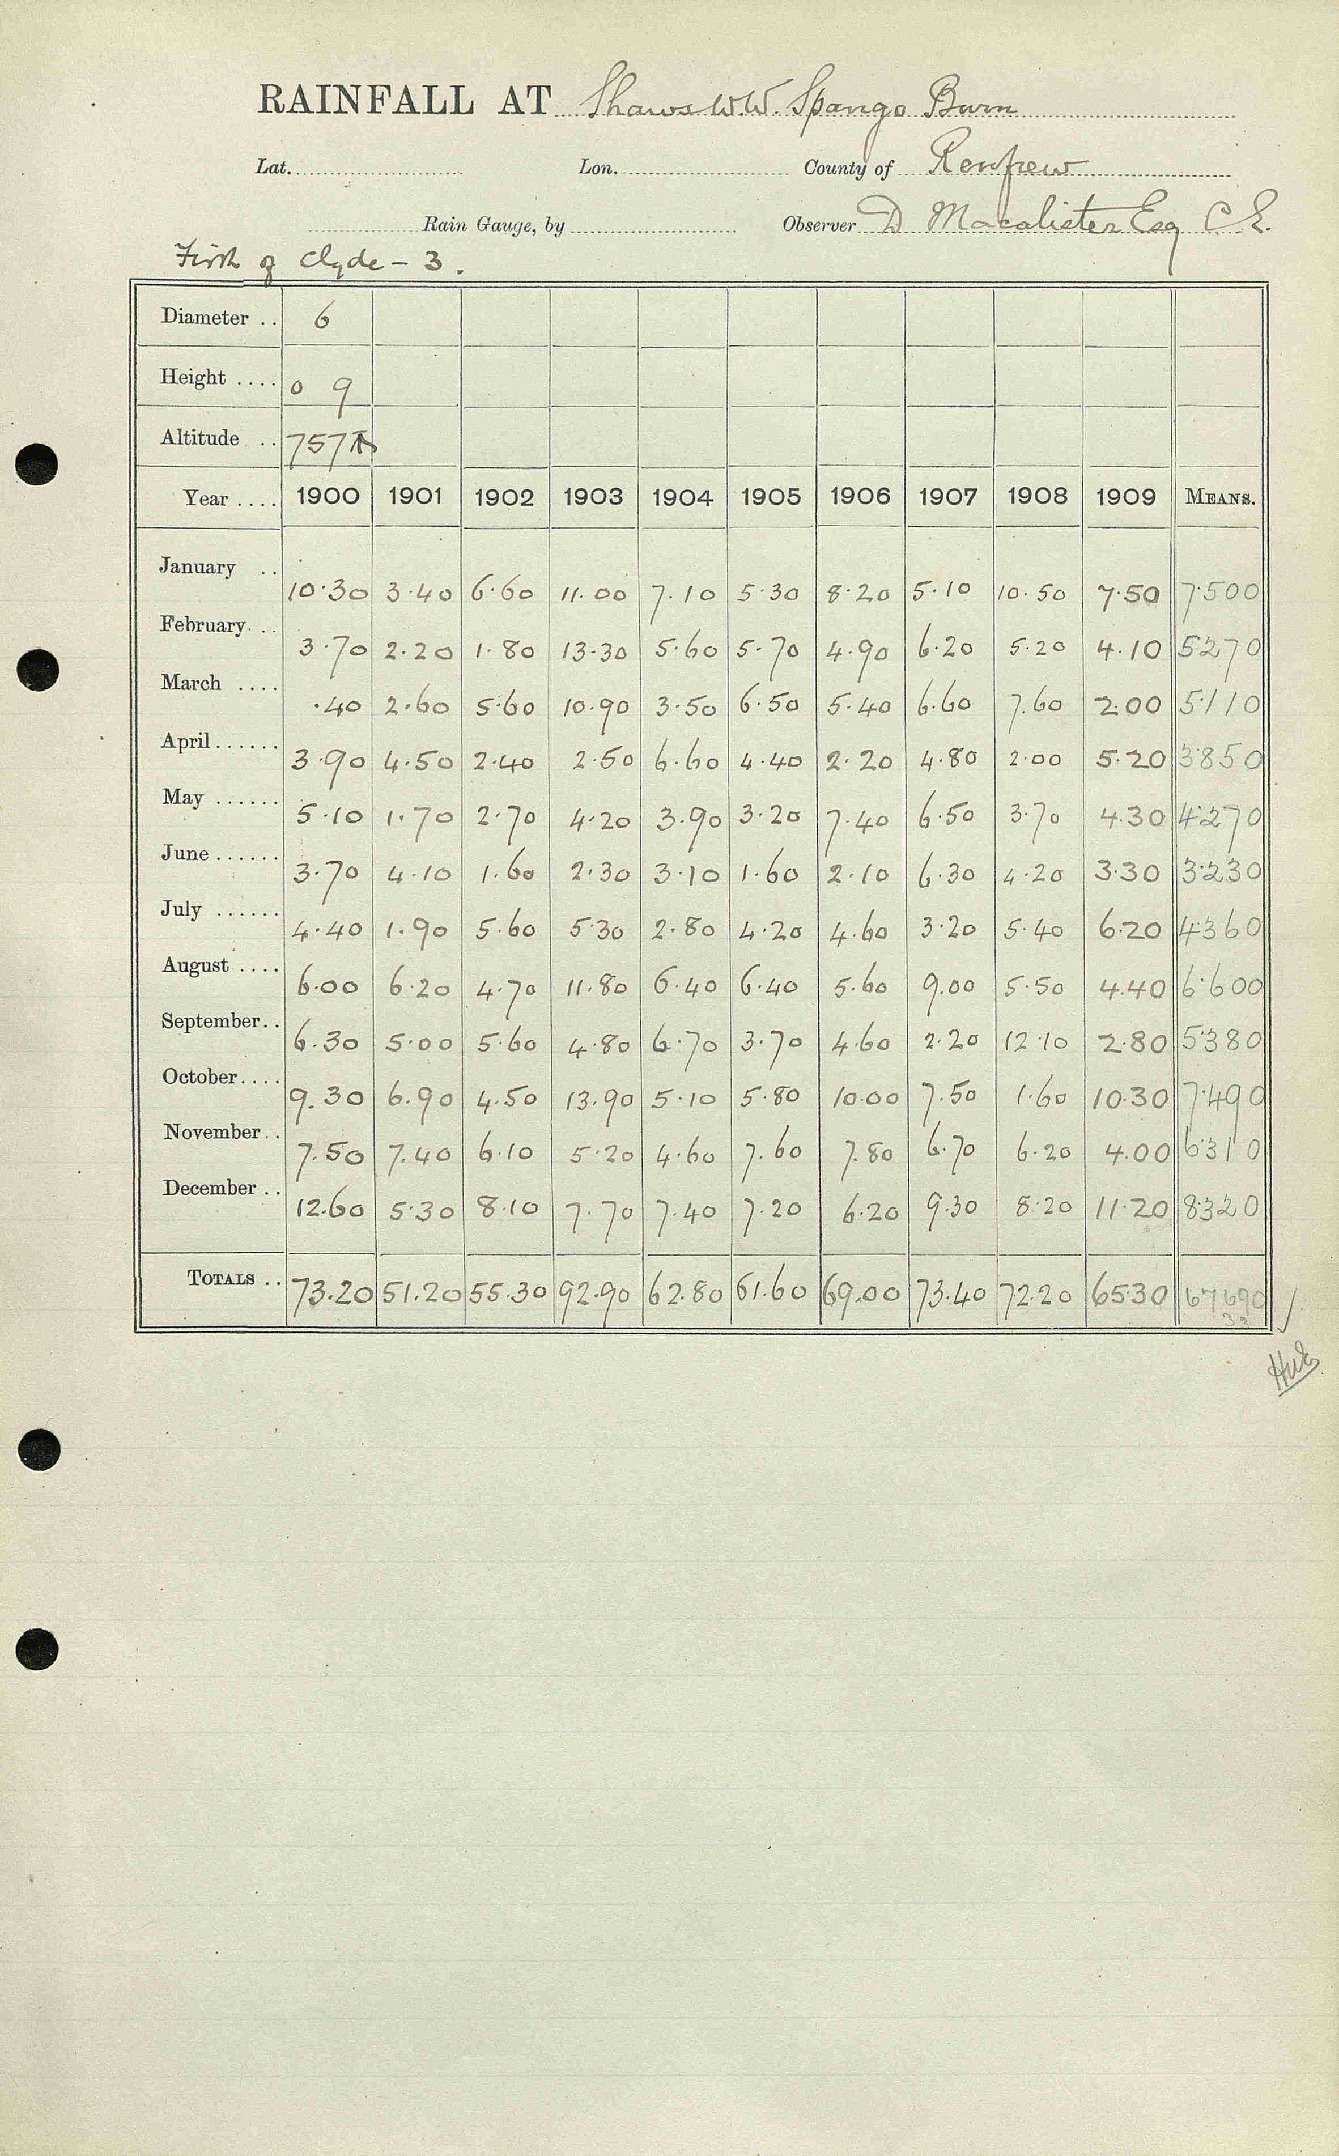 RAINFALL AT Shaws W.W. Spango Burn
Lat. Lon. County of Renfrew
Rain Gauge, by Observer D Macalister Esq C.E.
Firth of Clyde - 3.
Diameter .. 6
Height .... 0 9
Altitude .. 757
Year .... 1900 1901 1902 1903 1904 1905 1906 1907 1908 1909 MEANS.
January .. 10.30 3.40 6.60 11.00 7.10 5.30 8.20 5.10 10.50 7.50 7.500
February. .. 3.70 2.20 1.80 13.30 5.60 5.70 4.90 6.20 5.20 4.10 5270
March .... .40 2.60 5.60 10.90 3.50 6.50 5.40 6.60 7.60 2.00 5.110
April...... 3.90 4.50 2.40 2.50 6.60 4.40 2.20 4.80 2.00 5.20 3.850
May ...... 5.10 1.70 2.70 4.20 3.90 3.20 7.40 6.50 3.70 4.30 4.270
June...... 3.70 4.10 1.60 2.30 3.10 1.60 2.10 6.30 4.20 3.30 3.230
July ...... 4.40 1.90 5.60 5.30 2.80 4.20 4.60 3.20 5.40 6.20 4.360
August .... 6.00 6.20 4.70 11.80 6.40 6.40 5.60 9.00 5.50 4.40 6.600
September.. 6.30 5.00 5.60 4.80 6.70 3.70 4.60 2.20 12.10 2.80 5.380
October.... 9.30 6.90 4.50 13.90 5.10 5.80 10.00 7.50 1.60 10.30 7.490
November.. 7.50 7.40 6.10 5.20 4.60 7.60 7.80 6.70 6.20 4.00 6.310
December .. 12.60 5.30 8.10 7.70 7.40 7.20 6.20 9.30 8.20 11.20 8.320
TOTALS .. 73.20 51.20 55.30 92.90 62.80 61.60 69.00 73.40 72.20 65.30 67690